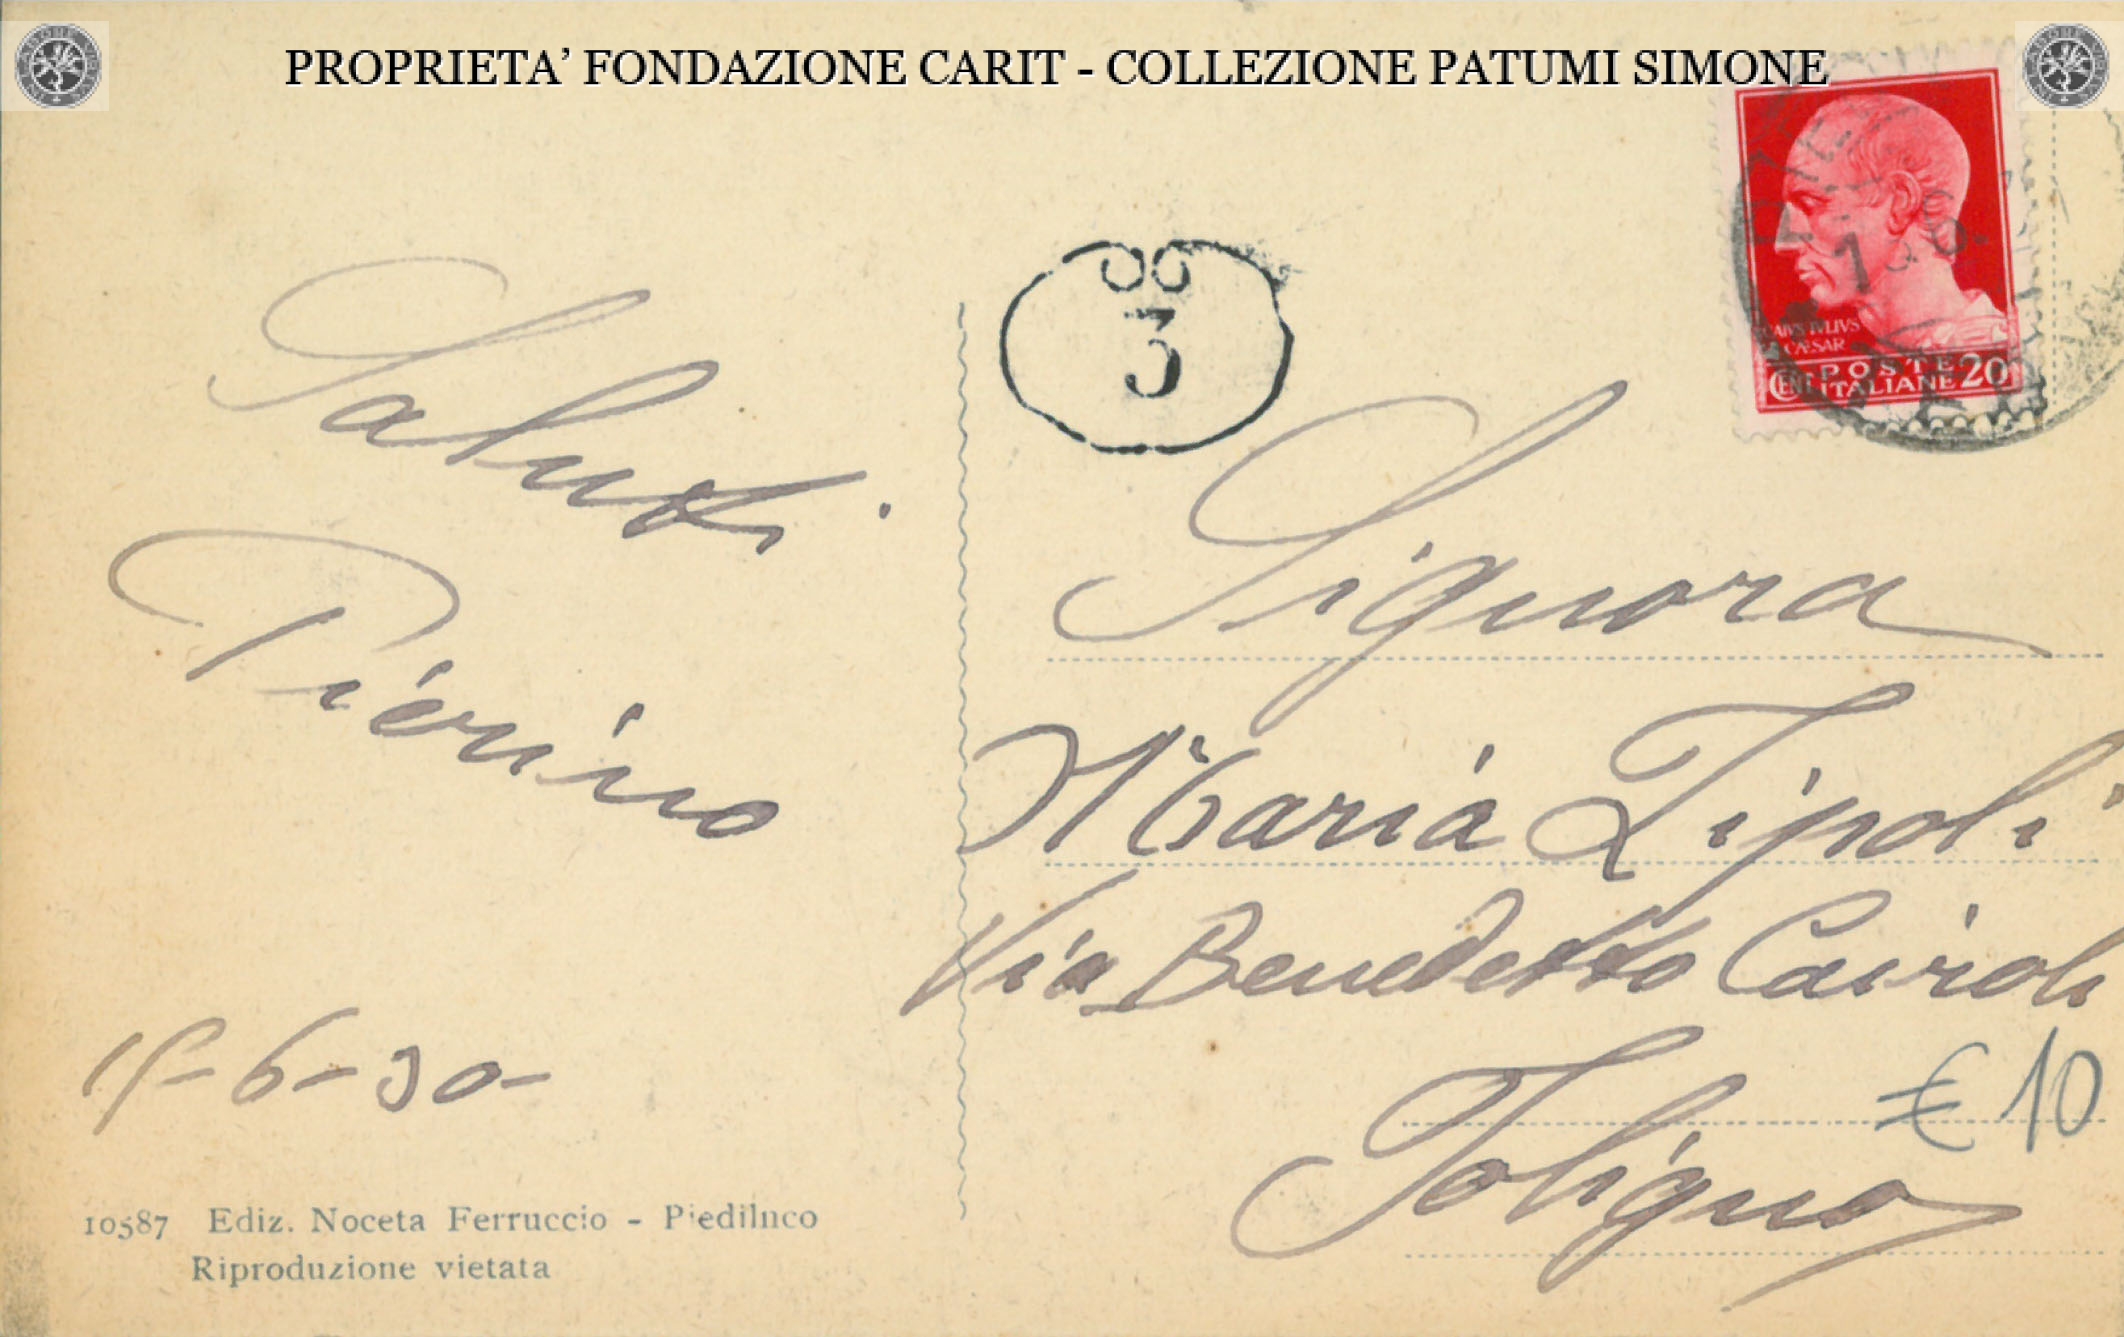 PROPRIETA’ FONDAZIONE CARIT - COLLEZIONE PATUMI SIMONE
CAIVS IVLIVS
CÆSAR
POSTE
CENT ITALIANE 20
3
Saluti
Pierino
15-6-30-
Signora
Maria Tipoli
Via Benedetto Cairoli
Foligno
€ 10
10587 Ediz. Noceta Ferruccio - Piediluco
Riproduzione vietata